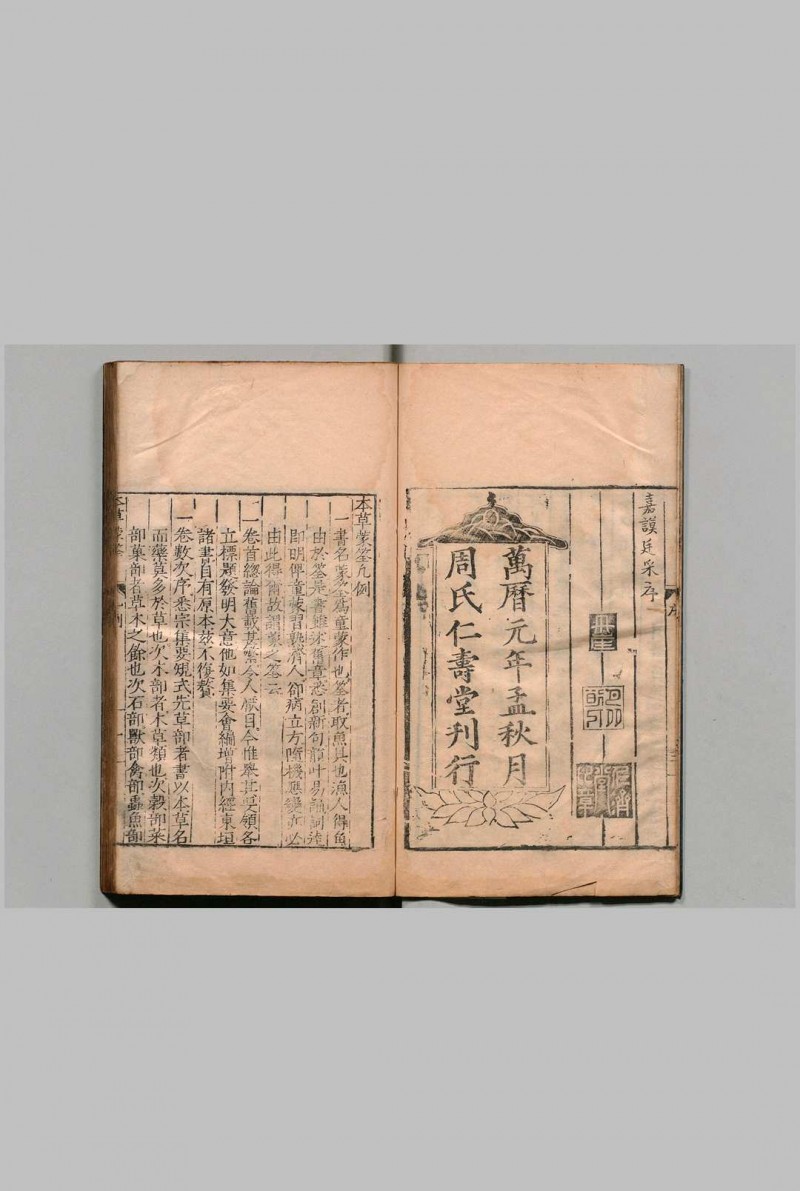 嘉謨廷采序
萬曆元年孟秋月
周氏仁壽堂刊行
本草蒙筌凡例
一書名蒙筌為童蒙作也筌者取魚具也漁人得魚
由於筌是書雖述舊章悉創新句韻叶易誦詞達
即明俾童蒙習熟濟人卻病立方隨機應變亦必
由此得爾故謂蒙之筌云
一卷首總論舊載甚繁令人厭目今惟舉其要領各
立標題發明大意他如集要會編增附內經東垣
諸書自有原本茲不復贅
一卷數次序悉宗集要規式先草部者書以本草名
而藥莫多於草也次木部者木草類也次穀部菜
部菓部者草木之餘也次石部獸部禽部蟲魚部
本草蒙筌
凡例